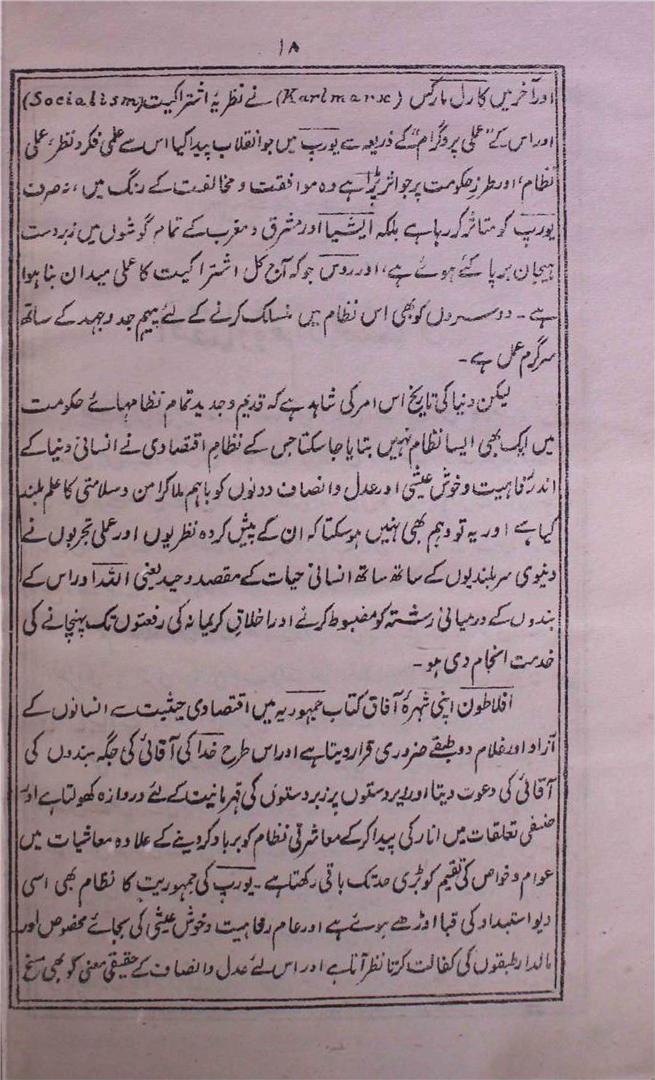 ۱۸
اور آخر میں کارل مارکس (Karlmarx) نے نظریۂ اشتراکیت (Socialism)
اور اس کے "عملی پروگرام" کے ذریعہ سے یورپ میں جو انقلاب پیدا کیا اس سے علمی فکر و نظر، عملی
نظام، اور طرز حکومت پر جو اثر پڑا ہے وہ موافقت و مخالفت کے رنگ میں، نہ صرف
یورپ کو متاثر کر رہا ہے بلکہ ایشیا اور مشرق و مغرب کے تمام گوشوں میں زبردست
ہیجان برپا کئے ہوئے ہے، اور روس جو کہ آج کل اشتراکیت کا عملی میدان بنا ہوا
ہے۔ دوسروں کو بھی اس نظام میں منسلک کرنے کے لئے پیہم جدوجہد کے ساتھ
سرگرم عمل ہے۔
لیکن دنیا کی تاریخ اس امر کی شاہد ہے کہ قدیم و جدید تمام نظامہائے حکومت
میں ایک بھی ایسا نظام نہیں بتایا جا سکتا جس کے نظام اقتصادی نے انسانی دنیا کے
اندر رفاہیت و خوش عیشی اور عدل و انصاف دونوں کو باہم ملا کر امن و سلامتی کا علم بلند
کیا ہے اور یہ تو وہم بھی نہیں ہو سکتا کہ ان کے پیش کردہ نظریوں اور عملی تجربوں نے
دنیوی سربلندیوں کے ساتھ ساتھ انسانی حیات کے مقصد وحید یعنی اللہ اور اس کے
بندوں کے درمیانی رشتہ کو مضبوط کرنے اور اخلاق کریمانہ کی رفعتوں تک پہنچانے کی
خدمت انجام دی ہو۔
افلاطون اپنی شہرۂ آفاق کتاب جمہوریہ میں اقتصادی حیثیت سے انسانوں کے
آزاد اور غلام دو طبقے ضروری قرار دیتا ہے اور اس طرح خدا کی آقائی کی جگہ بندوں کی
آقائی کی دعوت دیتا اور زیردستوں پر زبردستوں کی قہرمانیت کے لئے دروازہ کھولتا ہے اور
صنفی تعلقات میں انارکی پیدا کر کے معاشرتی نظام کو برباد کر دینے کے علاوہ معاشیات میں
عوام و خواص کی تقسیم کو بڑی حد تک باقی رکھتا ہے۔ یورپ کی جمہوریت کا نظام بھی اسی
دیو استبداد کی قبا اوڑھے ہوئے ہے اور عام رفاہیت و خوش عیشی کی بجائے مخصوص اور
مالدار طبقوں کی کفالت کرتا نظر آتا ہے اور اس لئے عدل و انصاف کے حقیقی معنی کو بھی مسخ